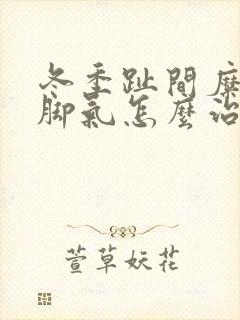 冬季趾間糜
腳氣怎麼治
萱草妖花